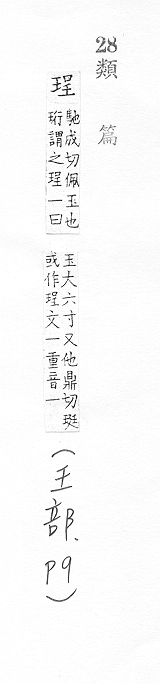 28
類篇
珵
馳成切佩玉也
珩謂之珵一曰
玉大六寸又他鼎切珽
或作珵文一重音一
(玉部、p9)